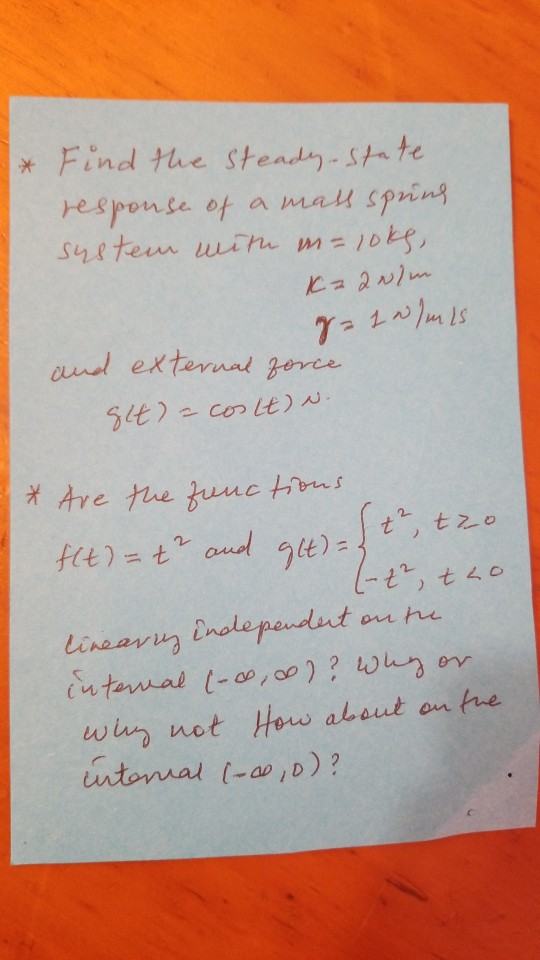 * Find the steady-state
response of a mass spring
system with m = 10 kg,
K = 2 N/m
γ = 1 N/m/s
and external force
g(t) = cos(t) N.
* Are the functions
f(t) = t² and g(t) = { t², t ≥ 0
-t², t < 0
linearly independent on the
interval (-∞, ∞)? Why or
why not How about on the
interval (-∞, 0)?